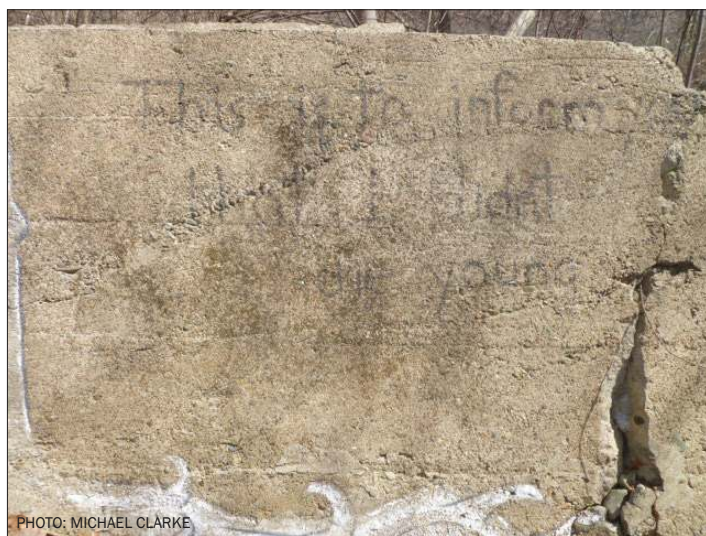 This is to inform you
that I didnt
die young
PHOTO: MICHAEL CLARKE